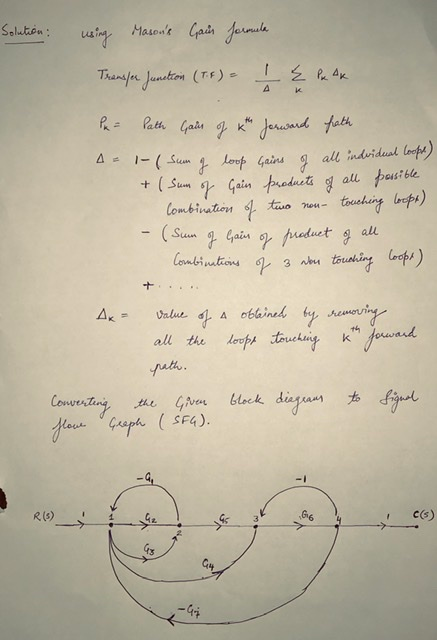 Solution: using Mason's Gain formula
Transfer function (T.F) = 1/Δ Σ_K P_K Δ_K
P_K = Path Gain of K^th forward path
Δ = 1 - ( Sum of loop Gains of all individual loops)
+ ( Sum of Gain products of all possible
Combination of two non-touching loops)
- ( Sum of Gain of product of all
Combinations of 3 Non touching loops)
+ .....
Δ_K = value of Δ obtained by removing
all the loops touching K^th forward
path.
Converting the Given block diagram to Signal
flow Graph ( SFG).
-G1 -1
R(s) 1 1 G2 2 G5 3 G6 4 1 C(s)
G3
G4
-G7